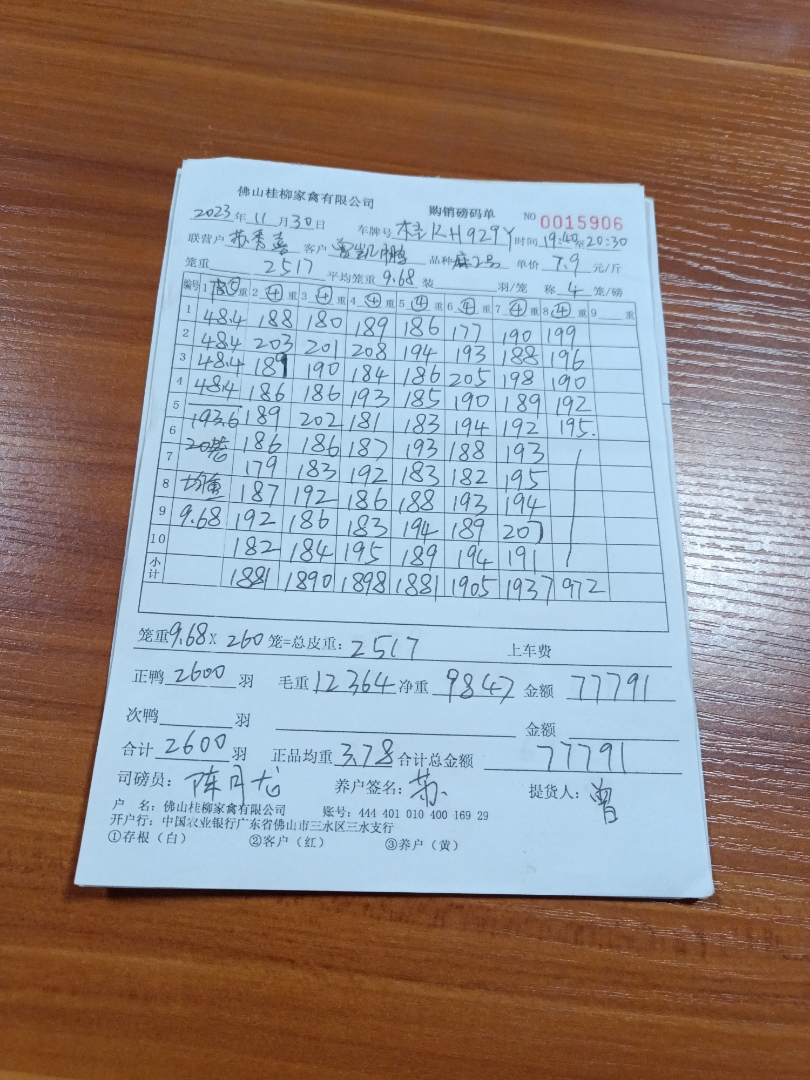 佛山桂柳家禽有限公司 购销磅码单 NO 0015906
2023年11月30日 车牌号 桂KH929Y 时间 19:40至20:30
联营户 苏秀喜 客户 曾凯鹏 品种 麻2号 单价 7.9 元/斤
笼重 2517 平均笼重 9.68 装 羽/笼 称 4 笼/磅
编号 1 重 2 ④ 重 3 ④ 重 4 ④ 重 5 ④ 重 6 ④ 重 7 ④ 重 8 ④ 重 9 重
1 48.4 188 180 189 186 177 190 199
2 48.4 203 201 208 194 193 188 196
3 48.4 189 190 184 186 205 198 190
4 48.4 186 186 193 185 190 189 192
5 193.6 189 202 181 183 194 192 195.
6 20笼 186 186 187 193 188 193
7 179 183 192 183 182 195
8 均重 187 192 186 188 193 194
9 9.68 192 186 183 194 189 207
10 182 184 195 189 194 191
小计 1881 1890 1898 1881 1905 1937 972
笼重9.68×260笼=总皮重:2517 上车费
正鸭 2600 羽 毛重 12364 净重 9847 金额 77791
次鸭 羽 金额
合计 2600 羽 正品均重 3.78 合计总金额 77791
司磅员: 陈月龙 养户签名: 苏 提货人: 曾
户 名: 佛山桂柳家禽有限公司 账号: 444 401 010 400 169 29
开户行: 中国农业银行广东省佛山市三水区三水支行
①存根(白) ②客户(红) ③养户(黄)